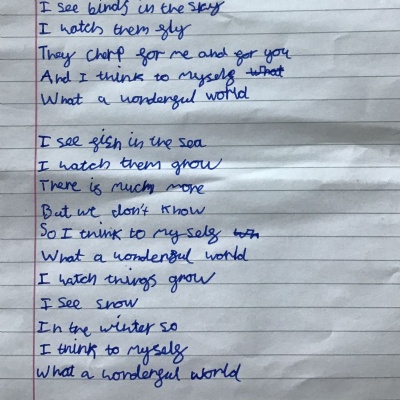 I see birds in the sky
I watch them fly
They chirp for me and for you
And I think to myself what
What a wonderful world
I see fish in the sea
I watch them grow
There is much more
But we don't know
So I think to my self wh
What a wonderful world
I watch things grow
I see snow
In the winter so
I think to myself
What a wonderful world